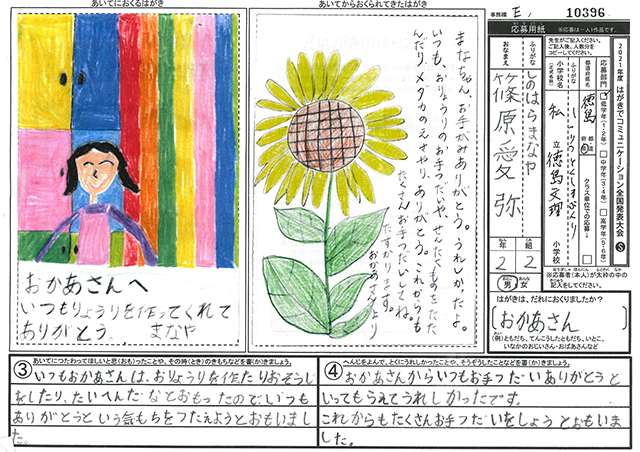 あいてにおくるはがき
おかあさんへ
いつもりょうりを作ってくれて
ありがとう。 まなや
あいてからおくられてきたはがき
まなちゃん、お手がみありがとう。うれしかったよ。
いつも、おりょうりのお手つだいや、せんたくものをたた
んだり、メダカのえさやり、ありがとう。これからも
たくさんお手つだいしてね。
たすかります。
おかあさんより
事務欄 E1 10396
応募用紙
※応募は一人1作品です。
2021年度 はがきでコミュニケーション全国発表大会 S
先生がご記入ください。
ご記入後、人数分を
コピーしてください。
応募部門
低学年(1・2年)
中学年(3・4年)
高学年(5・6年)
クラス単位での応募→
都道府県名
徳島
都道
府県
ふりがな
小学校名
(正式名称)
私立徳島文理小学校
ふりがな
おなまえ
しのはらまなや
篠原愛弥
年 2
組 2
男 女
※応募者(本人)が太枠の中の
記入をしてください。
はがきは、だれにおくりましたか?
おかあさん
(例)ともだち、てんこうしたともだち、いとこ、
いなかのおじいさん・おばあさんなど
③ あいてにつたわってほしいと思(おも)ったことや、その時(とき)のきもちなどを書(か)きましょう。
いつもおかあさんは、おりょうりを作たりおそうじ
をしたり、たいへんだなとおもったので、いつも
ありがとうという気もちをつたえようとおもいまし
た。
④ へんじをよんで、とくにうれしかったことや、そうぞうしたことなどを書(か)きましょう。
おかあさんからいつもお手つだいありがとうと
いってもらえてうれしかったです。
これからもたくさんお手つだいをしようとおもいま
した。